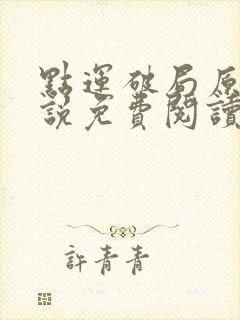 點運破局原
說免費閱讀
許青青